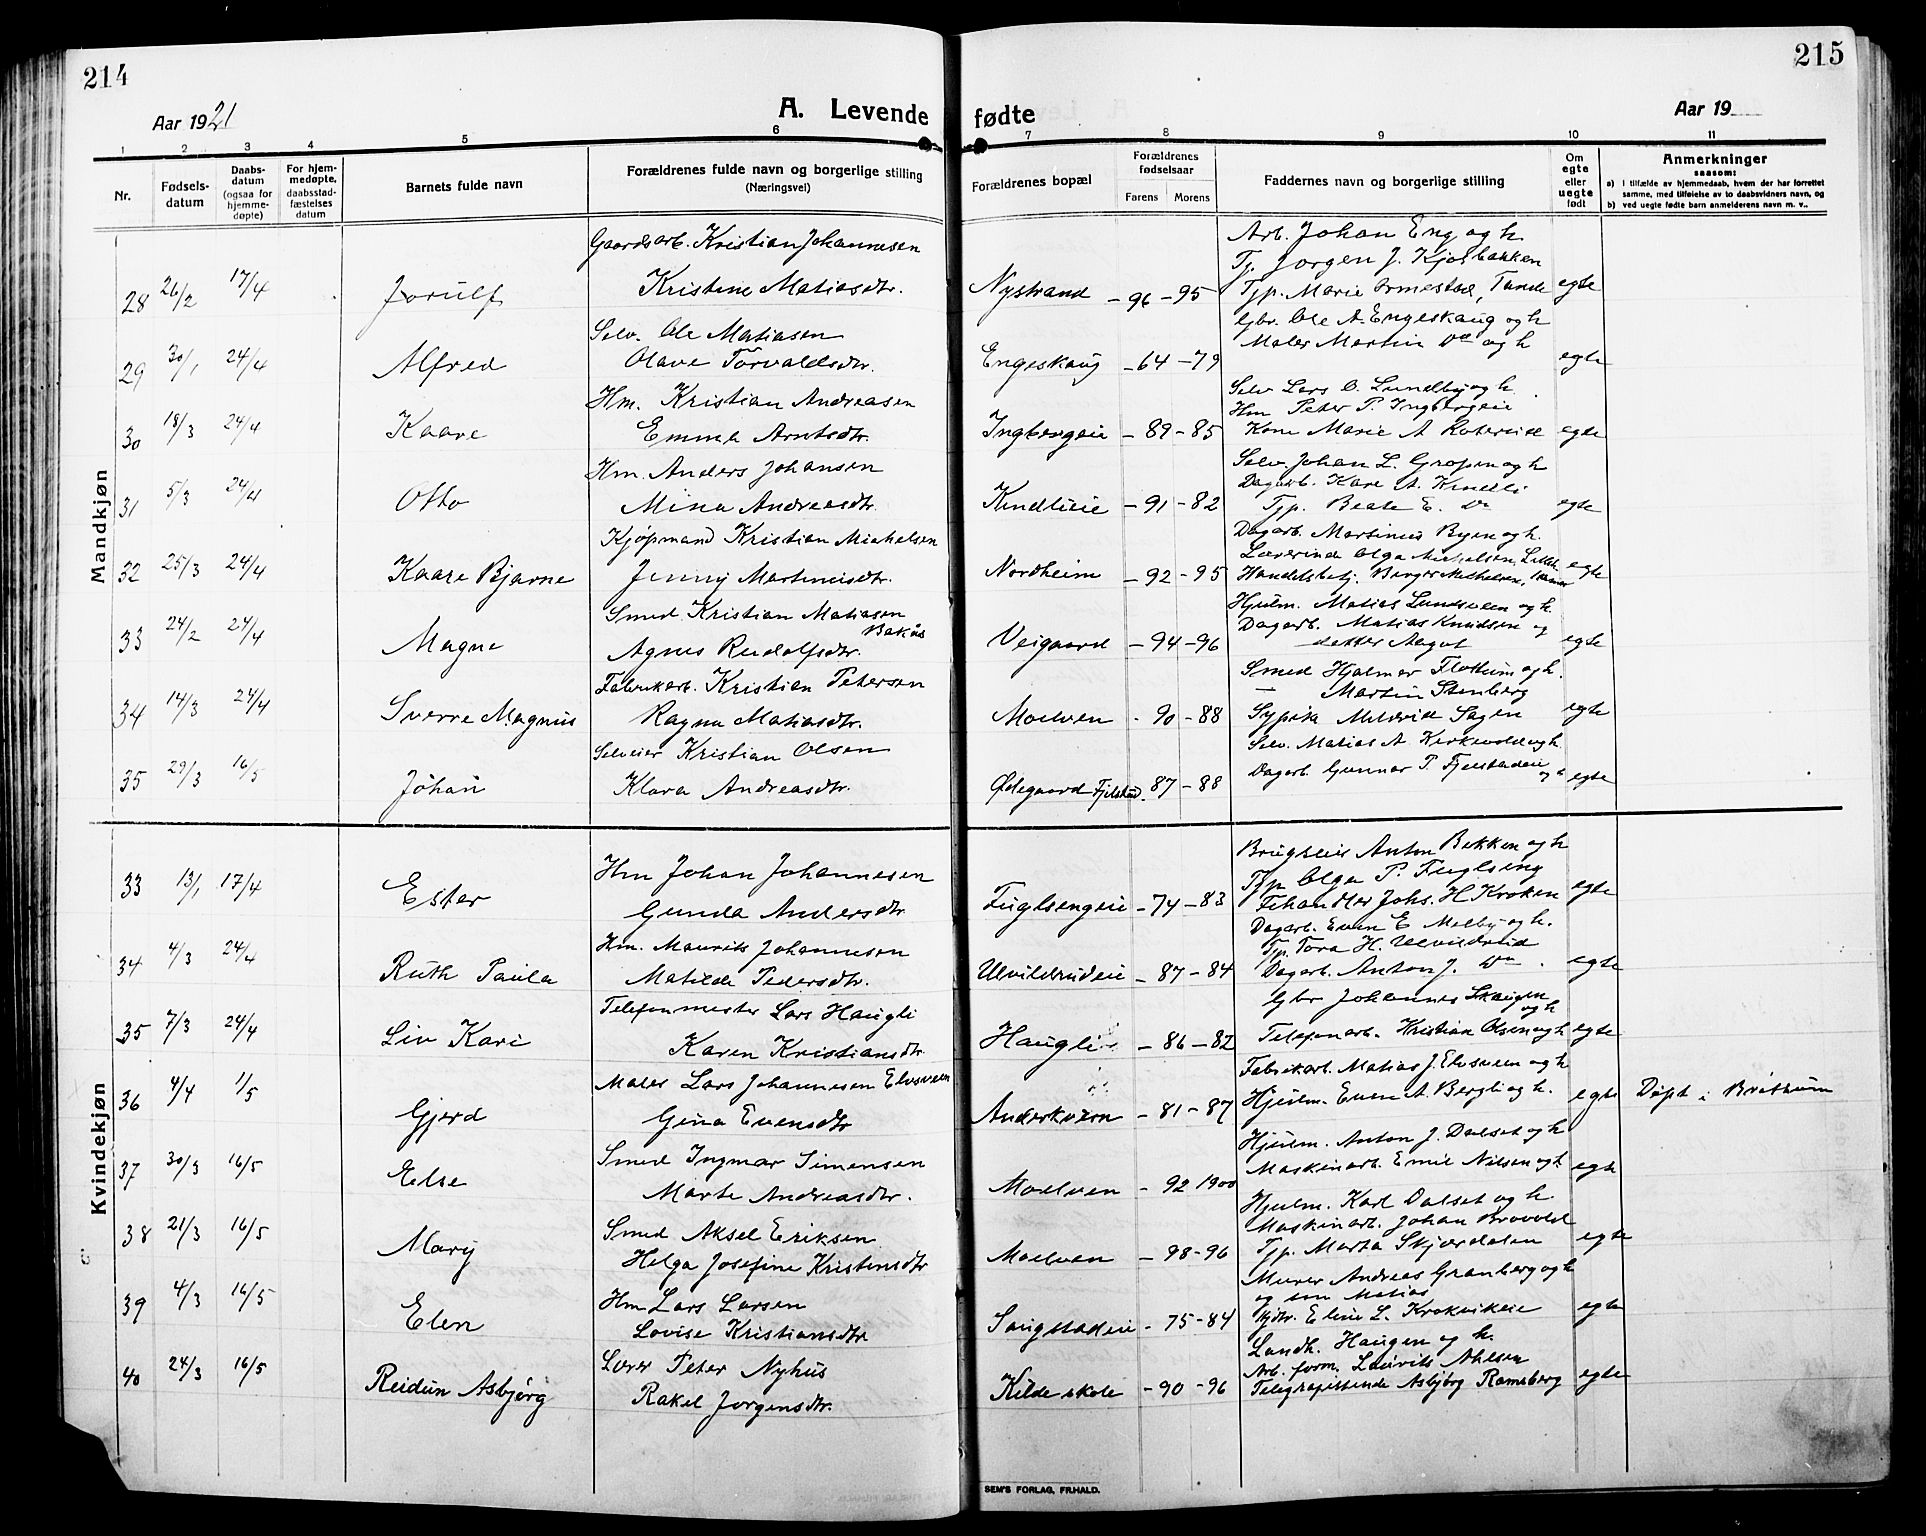 214
215
Aar 1921
A. Levende fødte
Aar 19
1 2 3 4 5 6 7 8 9 10 11
Nr.
Fødsels-datum
Daabs-datum (ogsaa for hjemme-døpte)
For hjem-medøpte, daabsstad-fæstelses datum
Barnets fulde navn
Forældrenes fulde navn og borgerlige stilling
(Næringsvei)
Forældrenes bopæl
Forældrenes fødselsaar
Farens Morens
Faddernes navn og borgerlige stilling
Om egte eller uegte født
Anmerkninger
saasom:
a) i tilfælde av hjemmedaab, hvem der har forrettet samme, med tilføielse av to daabsvidners navn, og
b) ved uegte fødte barn anmelderens navn m. v..
Mandkjøn
Gaardsarb. Kristian Johannesen
Arb. Johan Eng og h.
Tj. Jorgen J. Kjosbakken
28 26/2 17/4 Jorulf Kristine Matiasdtr. Nystrand - 96 - 95 Tjp. Marie Ormestad, Tande egte
Selv. Ole Matiasen
Gbr. Ole A. Engeskaug og h
Maler Martin Do og h
29 30/1 24/4 Alfred Olave Torvaldsdtr. Engeskaug - 64 - 79 egte
Hm. Kristian Andreasen
Selv Lars O. Lundby og h.
Hm Peter P. Ingbergeie
30 18/3 24/4 Kaare Emma Arntsdtr. Ingbergeie - 89 - 85 Kone Marie A. egte
Hm. Anders Johansen
Selv. Johan L. Gropen og h
Dagarb. Kare A.
31 5/3 24/4 Otto Mina Andreasdtr. Kindlieie - 91 - 82 Tjp. Beate E. Do egte
Kjøpmand Kristian Mickelsen
Dagarb. Martinus Byen og h.
Lærerinde Olga
32 25/3 24/4 Kaare Bjarne Jenny Martinusdtr. Nordheim - 92 - 95 Handelsbetj. Birger egte
Smed Kristian Matiasen Bakås
Hjulm. Matias Lundsveen og h.
Dagarb. Matias Knudsen og
33 24/2 24/4 Magne Agnes Rudolfsdtr. Veigaard - 94 - 96 datter Aagot egte
Fabrikarb. Kristian Petersen
Smed Hjalmar Flottum og h.
— Martin Stenberg
34 14/3 24/4 Sverre Magnus Ragna Matiasdtr. Moelven - 90 - 88 Sypike Mildrid Sagen egte
Selveier Kristian Olsen
Selv. Matias A. Kirkevold og h
35 29/3 16/5 Johan Klara Andreasdtr. Ødegaard Fjelstad - 87 - 88 Dagarb. Gunnar P. Fjelstadeie og h egte
Kvindekjøn
Hm Johan Johannesen
Brugseier Anton Bekken og h
Tjp Olga P. Fuglseng
33 13/1 17/4 Ester Gunda Andersdtr Fuglsengeie - 74 - 83 Fehandler Johs. H. Kroken egte
Hm. Maurits Johannesen
Dagarb. Even E Melby og h.
Tjp. Tora H. Ulvildrud
34 4/3 24/4 Ruth Paula Matilde Pedersdtr. Ulvildrudeie - 87 - 84 Dagarb. Anton J. Do egte
Telefonmester Lars Haugli
Gbr Johannes Skaugen og h
35 7/3 24/4 Liv Kari Karen Kristiansdtr Haugli - 86 - 82 Telefonarb. Kristian Olsen og h egte
Maler Lars Johannesen Elvsveen
Fabrikarb. Matias J. Elvsveen og h
36 4/4 1/5 Gjerd Gina Evensdtr Anderkvern - 81 - 87 Hjulm. Even A. Bergli og h. egte Døpt i Brøttum
Smed Ingmar Simensen
Hjulm. Anton J. Dalset og h
37 30/3 16/5 Else Marte Andreasdtr. Moelven - 92 1900 Maskinarb. Emil Nilsen og h egte
Smed Aksel Eriksen
Hjulm. Karl Dalset og h
Maskinarb. Johan Brovold
38 21/3 16/5 Mary Helga Josefine Kristensdtr Moelven - 98 - 96 Tjp. Marta Skjærdalen egte
Hm Lars Larsen
Murer Andreas Granberg og h
og søn Matias
39 4/3 16/5 Elen Lovise Kristiansdtr Saugstadeie - 75 - 84 Eline L. Krokvikeie egte
Lærer Peter Nyhus
Landh. Haugen og h.
Arb. form. Laurits Ahlsen
40 24/3 16/5 Reidun Asbjørg Rakel Jorgensdtr. Kilde skole - 90 - 96 Telegrafistinde Asbjørg Ramsberg egte
SEM'S FORLAG, FR.HALD.